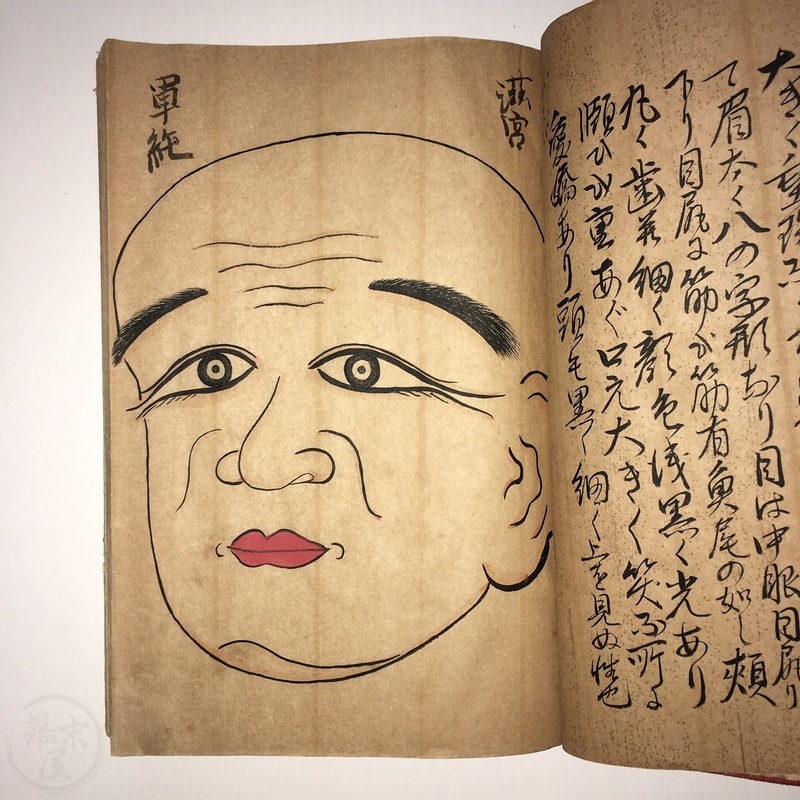 大きく重
て眉太く八の字形なり目は中眼目尻り
下り目尻に筋が筋有魚尾の如し頬
丸く歯並細く顔色浅黒く光あり
重あご口元大きく笑ふ所に
愛嬌あり頭毛黒く細く上を見ぬ性也
單純
幕末屋